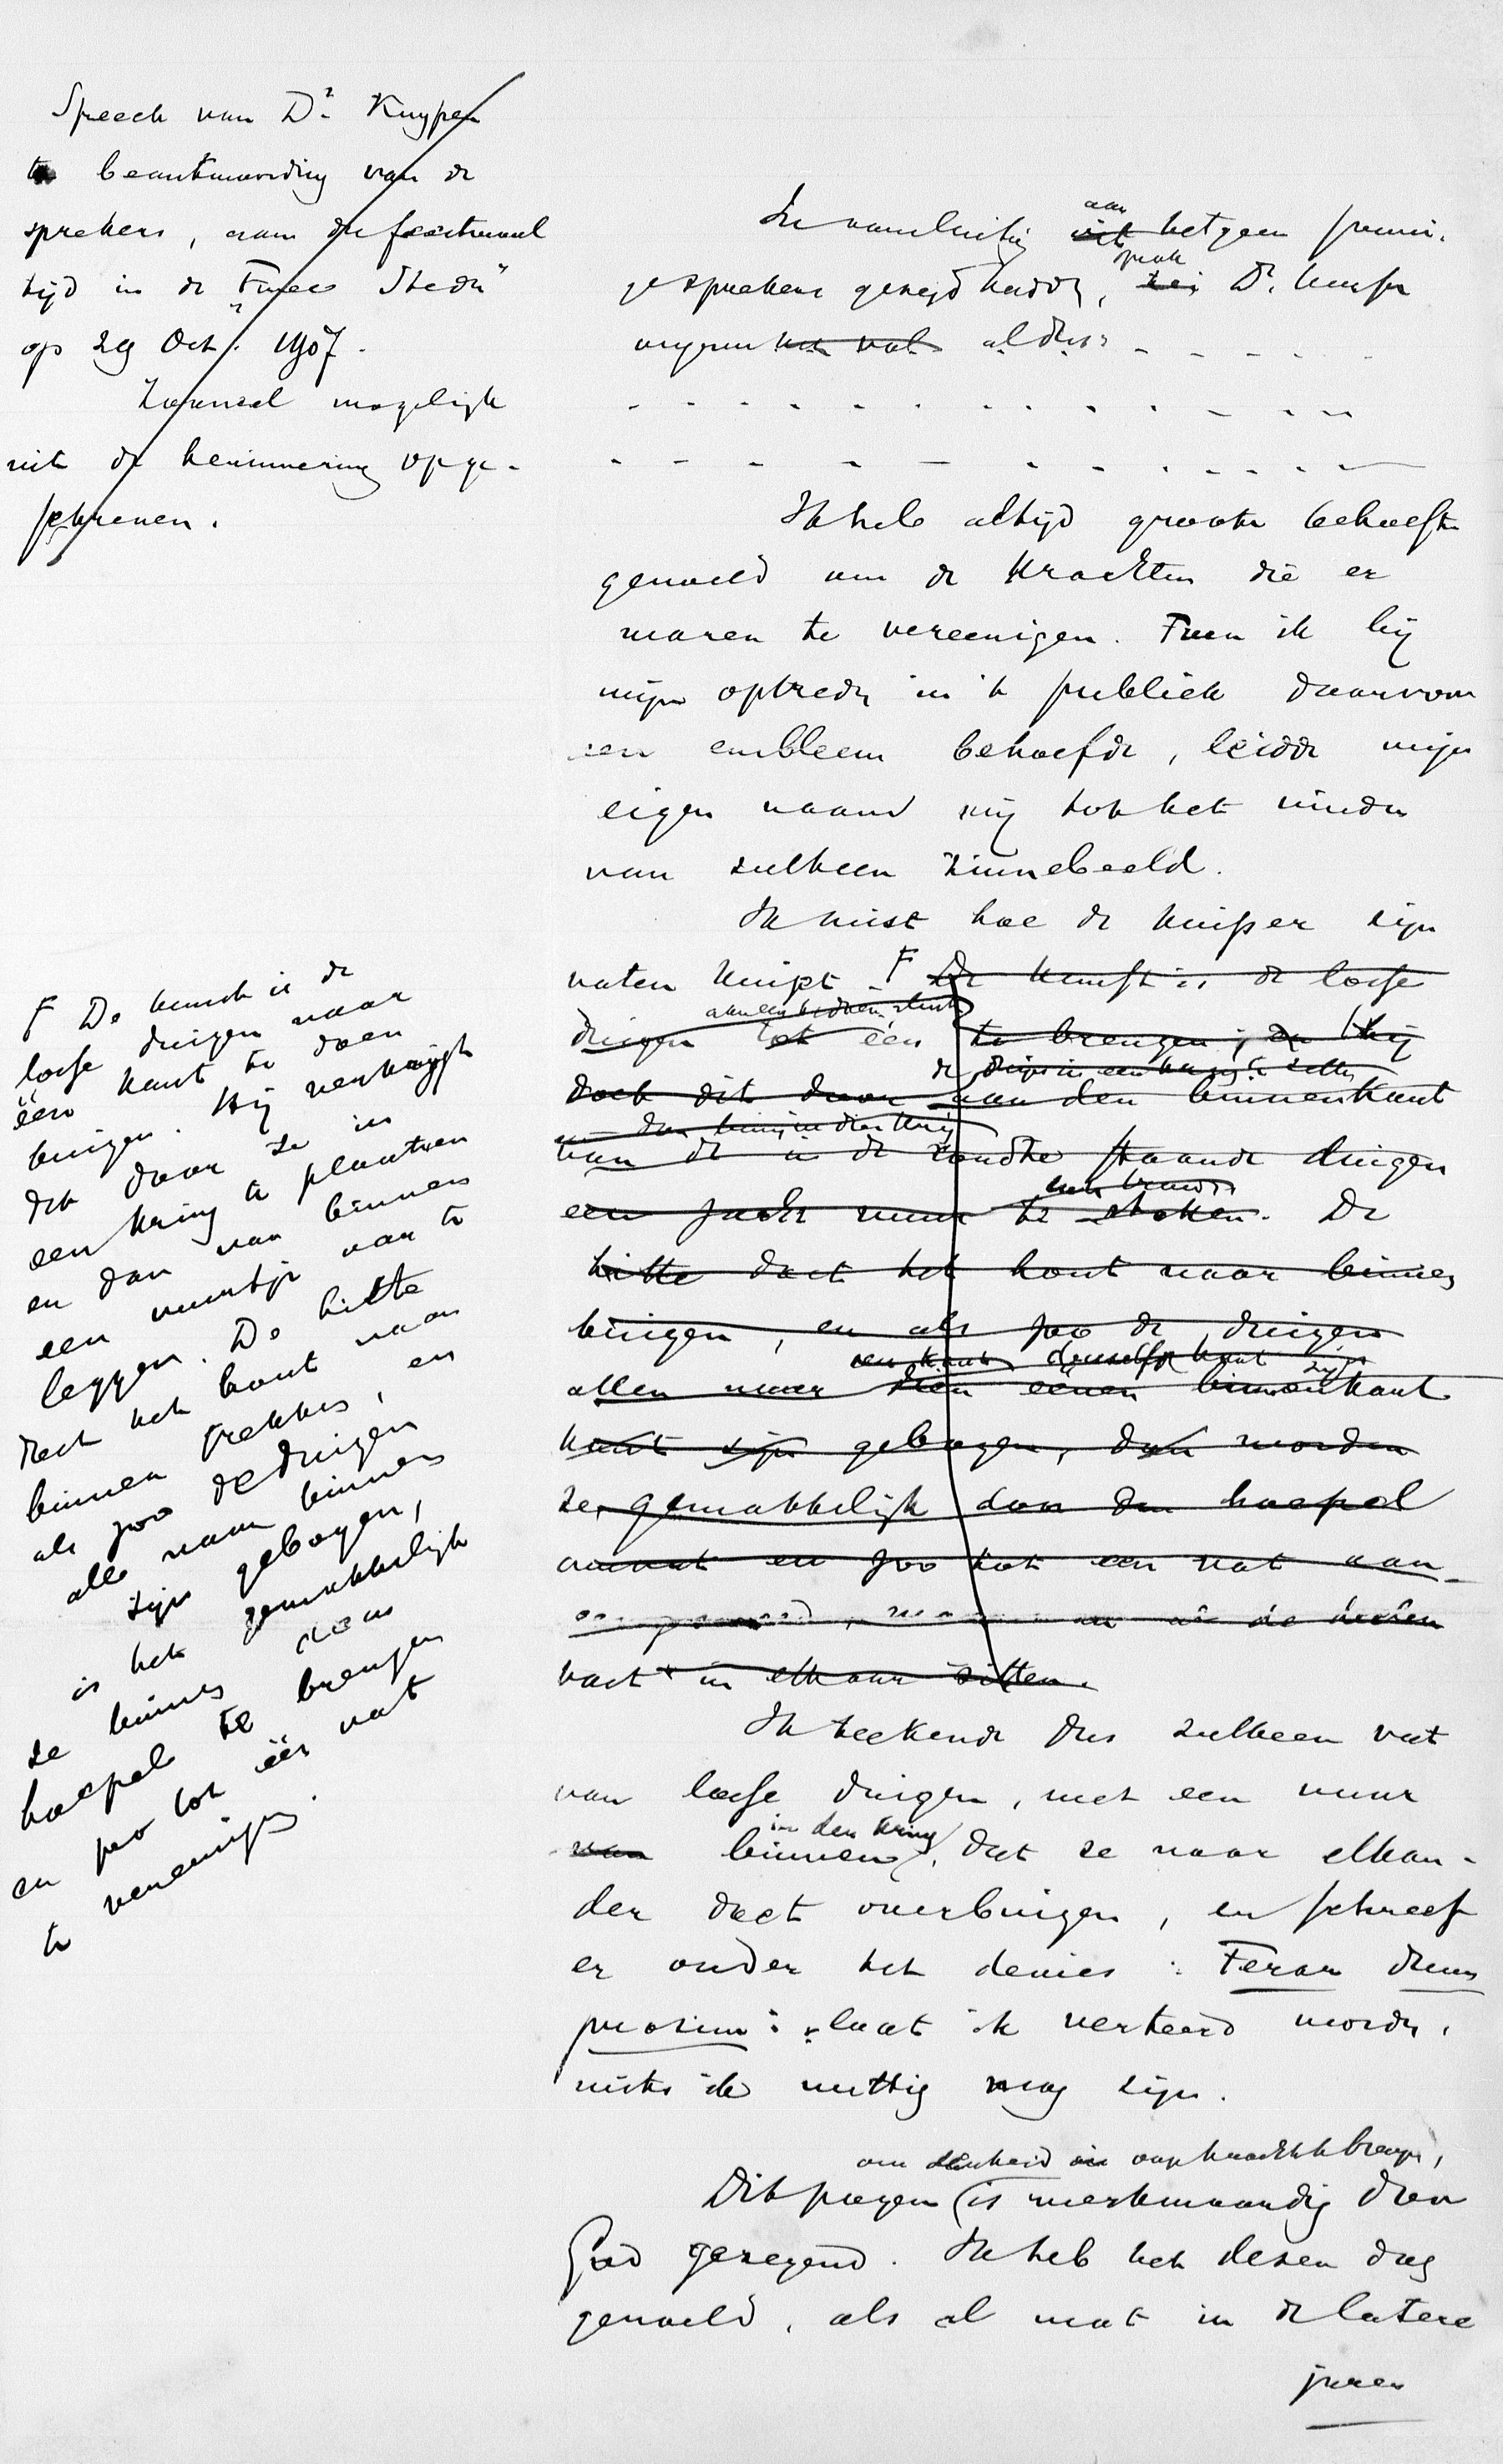 Speech van Dr. Kuyper
te beantwoording van de
sprekers, aan de feestmaal
tijd in de "Twee Steden"
op 29 Oct. 1907.
Zooveel mogelijk
uit de herinnering opge-
schreven.
In aansluitig aan hetgeen
sprak
gesprokens gezegd hadde, zei Dr. Kuyper
ongeveer het vol. aldus:
Ik heb altijd groote behoefte
gevoeld om de krachten die er
waren te vereenigen. Toen ik bij
mijn optreden in 't publiek daarvan
een embleem behoefde, leidde mijn
eigen naam mij tot het vinden
van zulkeen zinnebeeld.
Ik wist hoe de kuiper zijn
vaten kuipt. F De kunst is de losse
duigen tot één te brengen; en hij
de duigen in een kring te zetten
doet dit door aan den binnenkant
van de in de rondte staande duigen
een zacht vuur te stoken. De
hitte doet het hout naar binnen
buigen, en als zoo de duigen
een kant denzelfde kant zijn
allen naar den eenen binnenkant
zijn gebogen, dan worden
ze gemakkelijk door den hoepel
omvat en zoo tot een vat aan-
vast in elkaar zitten.
F De kunst is de
losse duigen naar
één kant te doen
buigen. Hij verkrijgt
dit door ze in
een kring te plaatsen
en dan van binnen
een vuurtje aan te
leggen. De hitte
doet het hout naar
binnen trekken, en
als zoo de duigen
alle naar binnen
zijn gebogen,
is het gemakkelijk
ze binnen den
hoepel te brengen
en zoo tot één vat
te vereenigen.
Ik teekende dus zulkeen vat
van losse duigen, met een vuur
in den kring
van binnen, dat ze naar elkan-
der doet overbuigen, en schreef
er onder het devies: Terar dum
prosim: "laat ik verteerd worden,
mits ik nuttig mag zijn.
om eenheid in onze kracht te brengen,
Dit pogen is merkwaardig door
God gezegend. Ik heb het dezen dag
gevoeld, als al wat in de latere
jaren